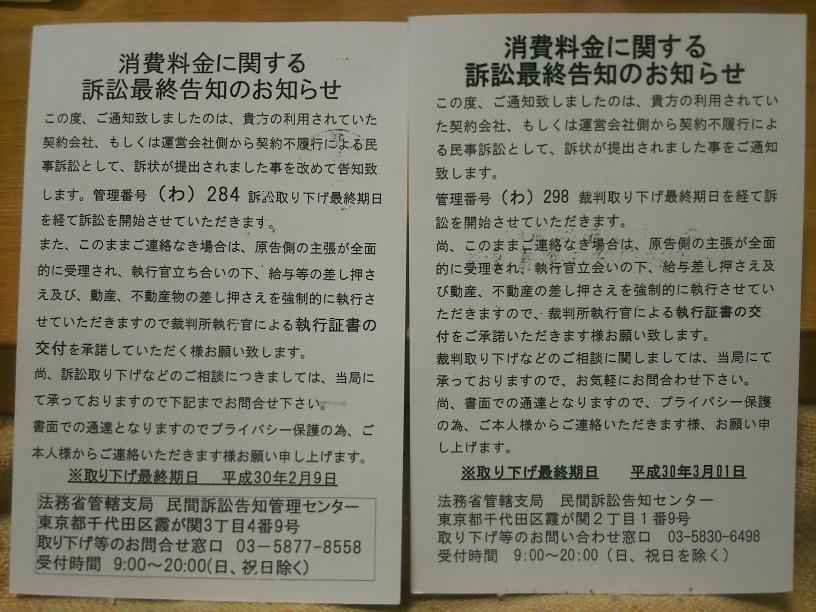 消費料金に関する
訴訟最終告知のお知らせ
この度、ご通知致しましたのは、貴方の利用されていた
契約会社、もしくは運営会社側から契約不履行による民
事訴訟として、訴状が提出されました事を改めて告知致
します。管理番号（わ）284 訴訟取り下げ最終期日
を経て訴訟を開始させていただきます。
また、このままご連絡なき場合は、原告側の主張が全面
的に受理され、執行官立ち合いの下、給与等の差し押さ
え及び、動産、不動産物の差し押さえを強制的に執行さ
せていただきますので裁判所執行官による執行証書の
交付を承諾していただく様お願い致します。
尚、訴訟取り下げなどのご相談につきましては、当局に
て承っておりますので下記までお問合せ下さい。
書面での通達となりますのでプライバシー保護の為、ご
本人様からご連絡いただきます様お願い申し上げます。
※取り下げ最終期日　平成30年2月9日
法務省管轄支局　民間訴訟告知管理センター
東京都千代田区霞が関3丁目4番9号
取り下げ等のお問合せ窓口　03－5877-8558
受付時間　9:00～20:00(日、祝日除く)
消費料金に関する
訴訟最終告知のお知らせ
この度、ご通知致しましたのは、貴方の利用されてい
た契約会社、もしくは運営会社側から契約不履行によ
る民事訴訟として、訴状が提出されました事をご通知
致します。
管理番号（わ）298 裁判取り下げ最終期日を経て訴
訟を開始させていただきます。
尚、このままご連絡なき場合は、原告側の主張が全面
的に受理され、執行官立会いの下、給与差し押さえ及
び動産、不動産の差し押さえを強制的に執行させてい
ただきますので、裁判所執行官による執行証書の交
付をご承諾いただきます様お願い致します。
裁判取り下げなどのご相談に関しましては、当局にて
承っておりますので、お気軽にお問合わせ下さい。
尚、書面での通達となりますので、プライバシー保護
の為、ご本人様からご連絡いただきます様、お願い申
し上げます。
※取り下げ最終期日　平成30年3月01日
法務省管轄支局　民間訴訟告知センター
東京都千代田区霞が関２丁目１番9号
取り下げ等のお問い合わせ窓口　03-5830-6498
受付時間　9:00～20:00（日、祝日を除く）